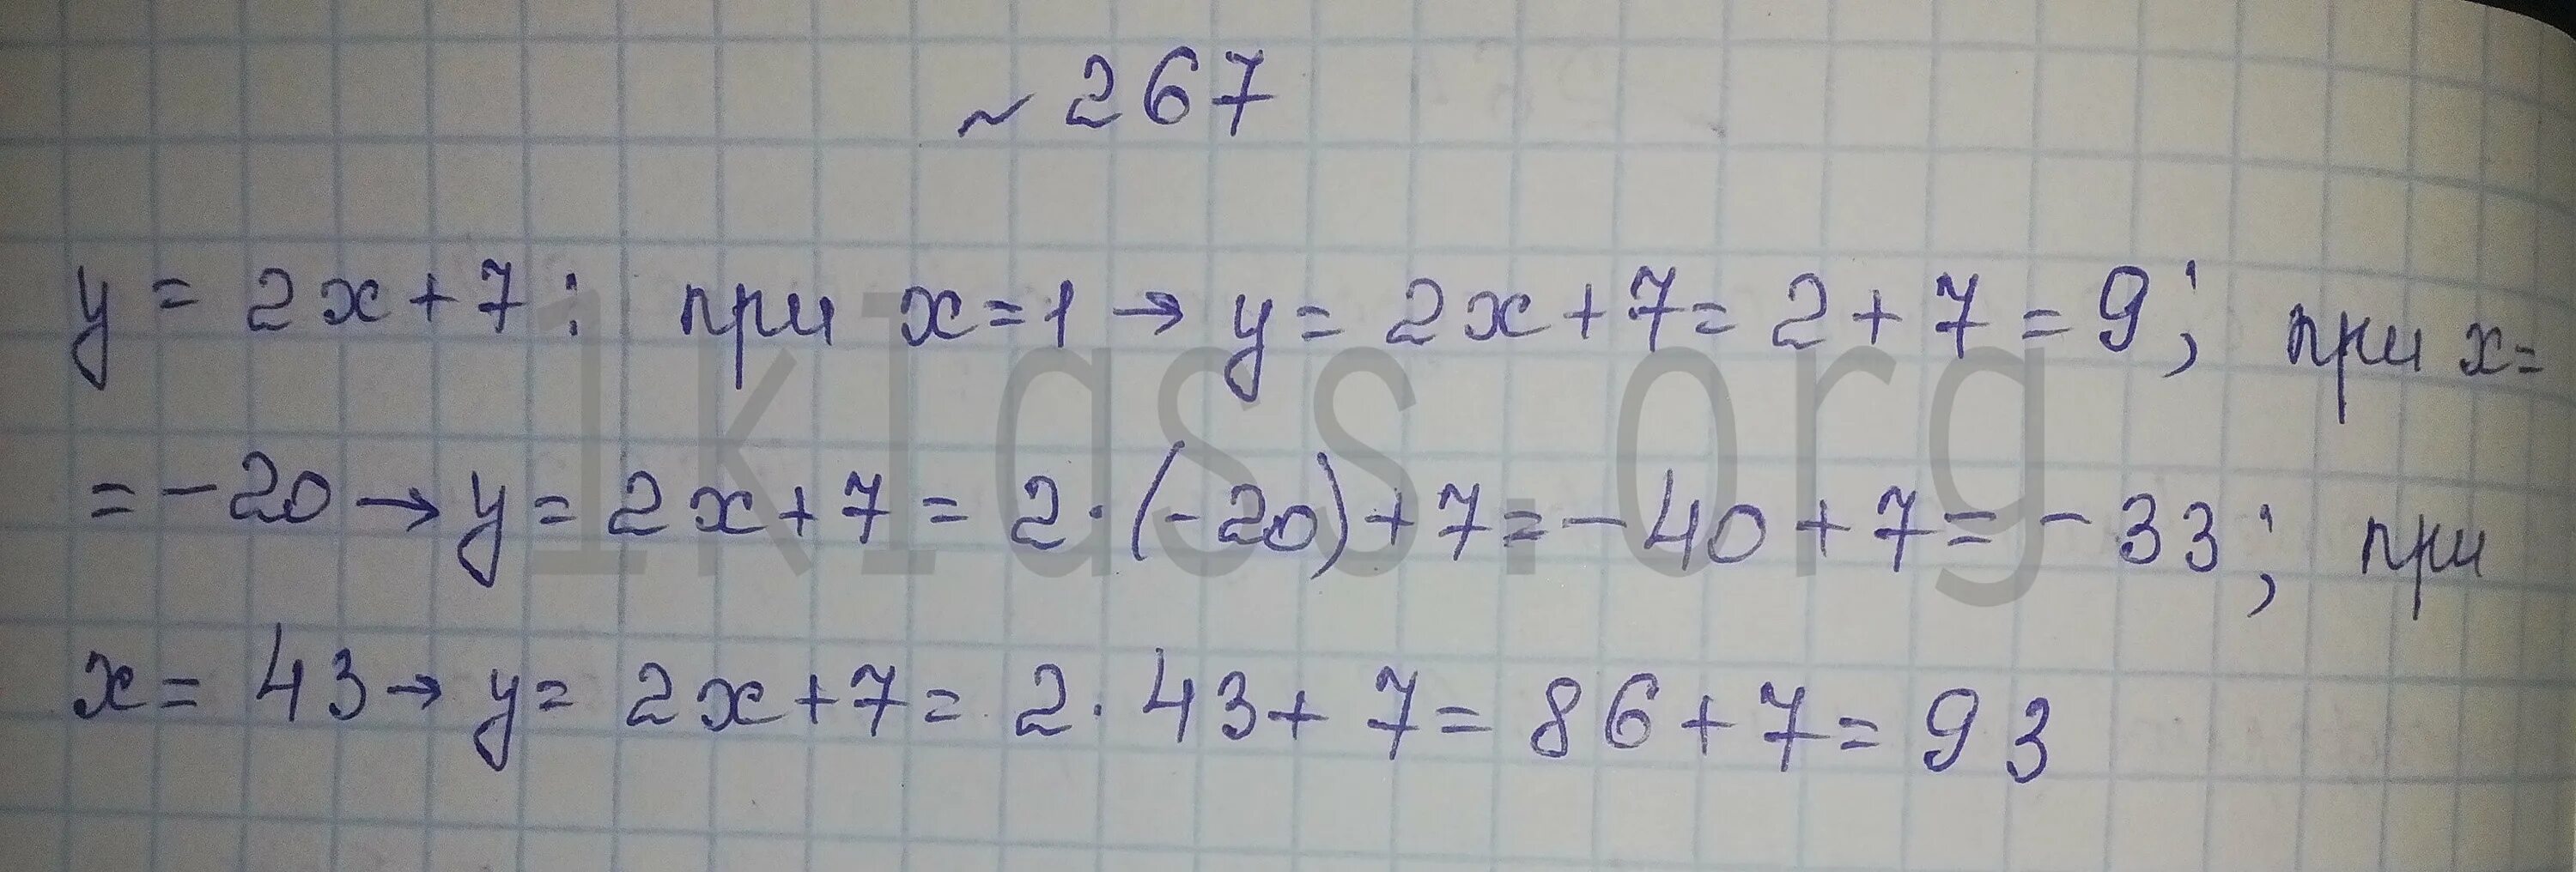 ~ 267
y = 2x + 7 : при x = 1 → y = 2x + 7 = 2 + 7 = 9 ; при x =
= -20 → y = 2x + 7 = 2 · (-20) + 7 = -40 + 7 = -33 ; при
x = 43 → y = 2x + 7 = 2 · 43 + 7 = 86 + 7 = 93
1klass.org